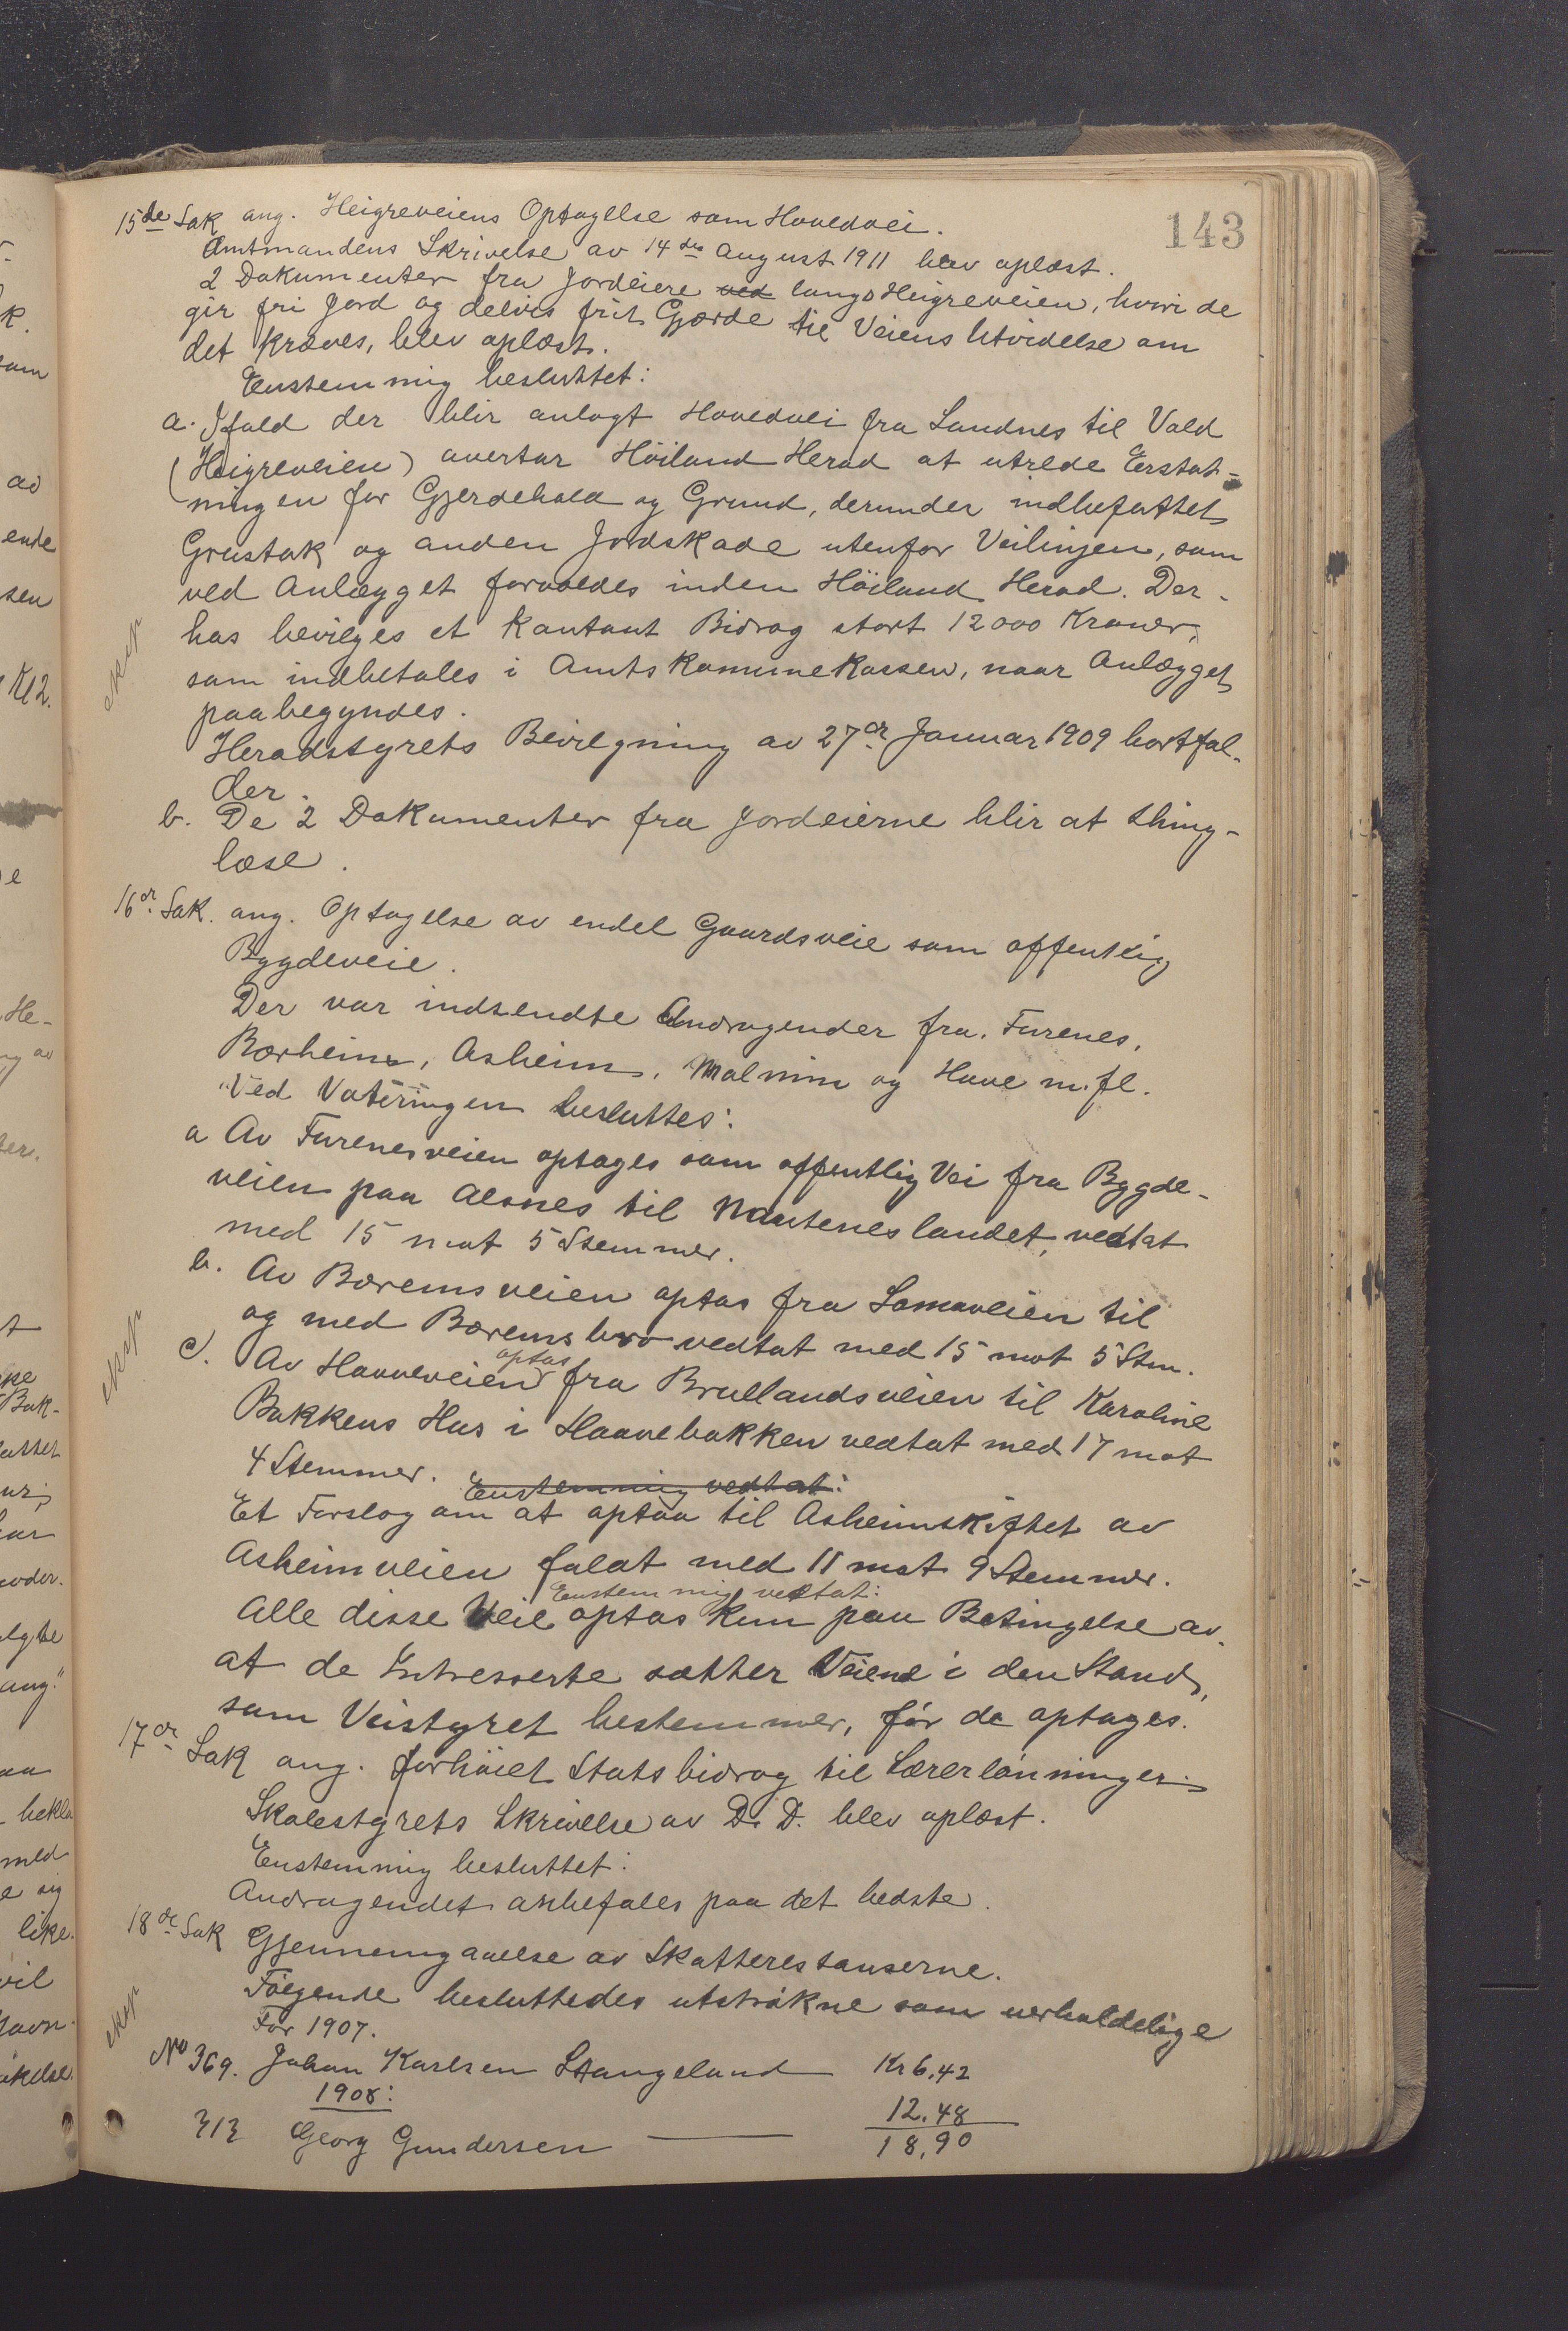 143
15de Sak ang. Heigreveiens Optagelse som Hovedvei.
Amtmandens Skrivelse av 14de August 1911 blev oplæst.
2 Dokumenter fra Jordeiere ved langs Heigreveien, hvori de
gir fri Jord og delvis frit Gjærde til Veiens Utvidelse om
det kræves, blev oplæst.
Enstemmig besluttet:
a. Ifald der blir anlagt Hovedvei fra Sandnes til Vald
(Heigreveien) overtar Höiland Herad at utrede Erstat-
ningen for Gjerdehold og Grund, derunder indbefattet
Grustak og anden Jordskade utenfor Veilinjen, som
ved Anlægget forvoldes inden Höiland Herad. Der-
hos bevilges et kontant Bidrag stort 12000 Kroner,
som indbetales i Amtskommunekassen, naar Anlægget
paabegyndes.
eksp
Heradstyrets Bevilgning av 27de Januar 1909 bortfal-
der.
b. De 2 Dokumenter fra Jordeierne blir at thing-
læse.
16de Sak. ang. Optagelse av endel Gaardsveie som offentlig
Bygdeveie.
Der var indsendte Andragender fra. Furenes,
Bærheim, Asheim, Malmim og Haave m.fl.
Ved Voteringen besluttes:
a Av Furenesveien optages som offentlig Vei fra Bygde-
veien paa Alsnes til Nautenes landet, vedtat
med 15 mot 5 Stemmer.
b. Av Bæremsveien optas fra Somaveien til
og med Bærems bro vedtat med 15 mot 5 Stm.
eksp
c. Av Haaveveien optas fra Brullandsveien til Karoline
Bakkens Hus i Haavebakken vedtat med 17 mot
4 Stemmer. Enstemmig vedtat:
Et Forslag om at optaa til Asheimskiftet av
Asheimveien falat med 11 mot 9 Stemmer.
Enstemmig vedtat:
Alle disse Veie optas kun paa Betingelse av,
at de Intresserte sætter Veiene i den Stand,
som Veistyret bestemmer, för de optages.
17de Sak ang. forhöiet Statsbidrag til Lærerlönninger.
Skolestyrets Skrivelse av D. D. blev oplæst.
Enstemmig besluttet:
Andragendet anbefales paa det bedste.
18de Sak Gjennemgaaelse av Skatterestanserne.
Fölgende besluttedes utströkne som uerholdelige
eksp
For 1907.
No 369. Johan Karlsen Stangeland Kr 6,42
1908:
313 Georg Gundersen — 12.48
18,90